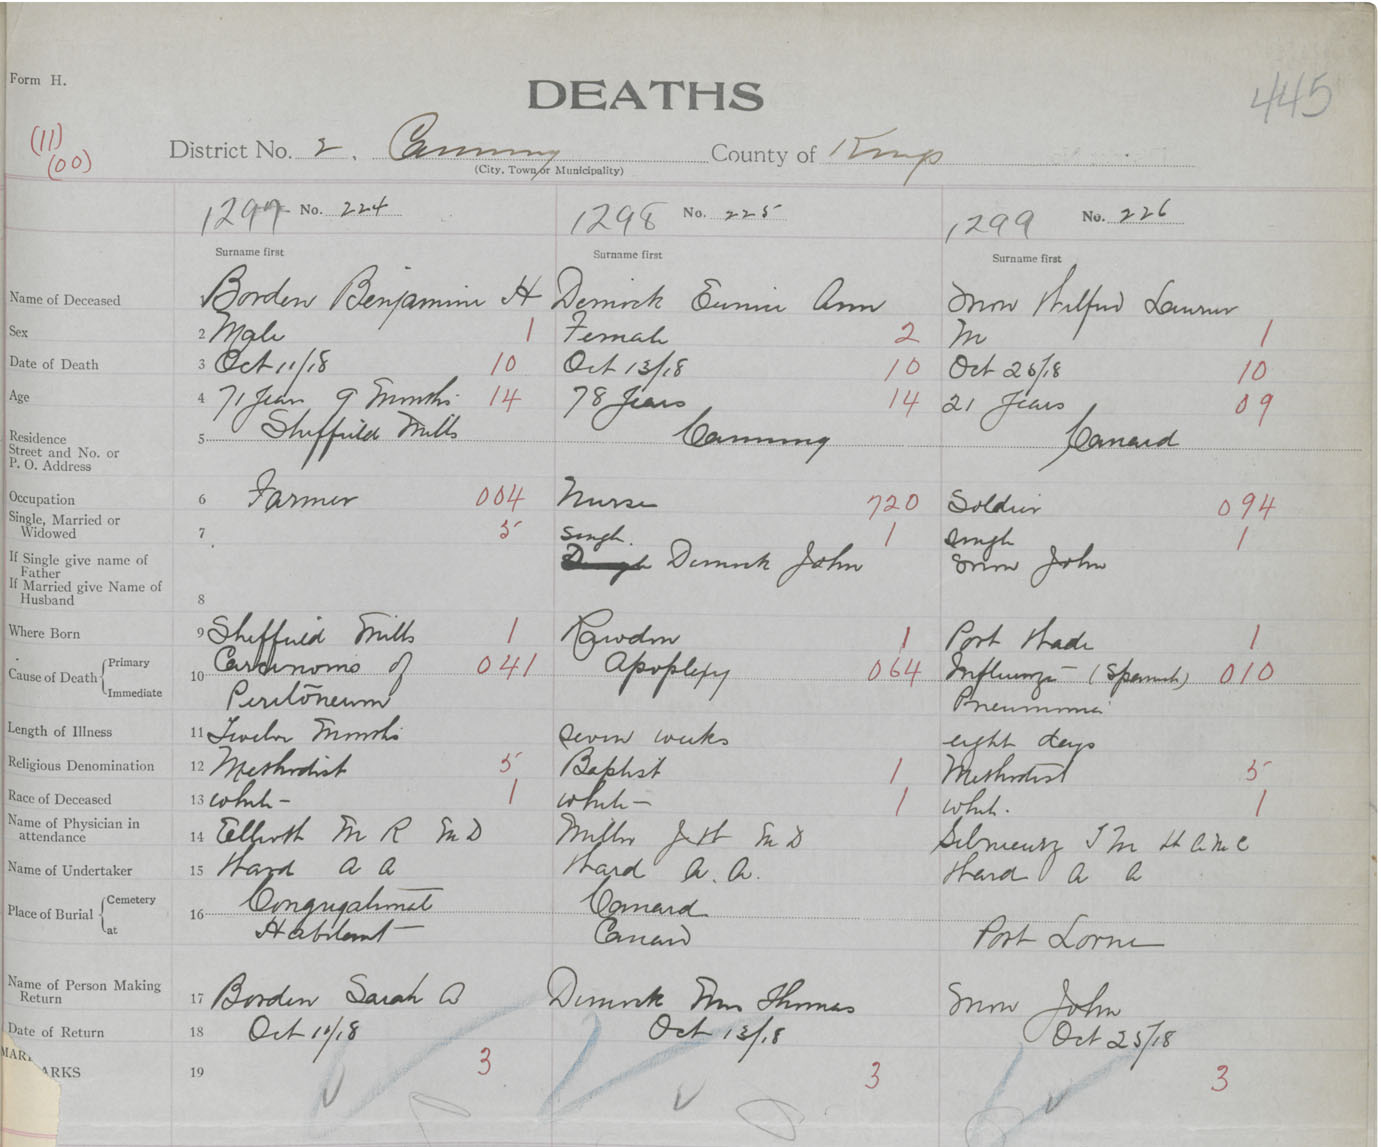 Form H.
DEATHS
445
(11)
(00)
District No. 2. Canning County of Kings
(City, Town or Municipality)
1297 No. 224 1298 No. 225 1299 No. 226
Surname first Surname first Surname first
Name of Deceased Borden Benjamin H Dimock Eunice Ann Snow Wilfred Laurier
Sex 2 Male 1 Female 2 M 1
Date of Death 3 Oct 11/18 10 Oct 13/18 10 Oct 25/18 10
Age 4 71 years 9 months 14 78 years 14 21 years 09
Residence
Street and No. or
P. O. Address
5 Sheffield Mills Canning Canard
Occupation 6 Farmer 004 Nurse 720 Soldier 094
Single, Married or
Widowed 7 5 Single 1 Single 1
If Single give name of
Father Dimock John Snow John
If Married give Name of
Husband 8
Where Born 9 Sheffield Mills 1 Rawdon 1 Port Wade 1
Cause of Death Primary 10 Carcinoma of 041 Apoplexy 064 Influenza (Spanish) 010
Immediate Peritoneum Pneumonia
Length of Illness 11 Twelve Months seven weeks eight days
Religious Denomination 12 Methodist 5 Baptist 1 Methodist 5
Race of Deceased 13 white 1 white 1 white 1
Name of Physician in
attendance 14 M R M D Miller J H M D J M A M C
Name of Undertaker 15 Ward A A Ward A. A. Ward A A
Place of Burial Cemetery 16 Congregational Canard
at Habitant Canard Port Lorne
Name of Person Making
Return 17 Borden Sarah A Dimock Thomas Snow John
Date of Return 18 Oct 11/18 Oct 13/18 Oct 25/18
MAR
ARKS 19 3 3 3